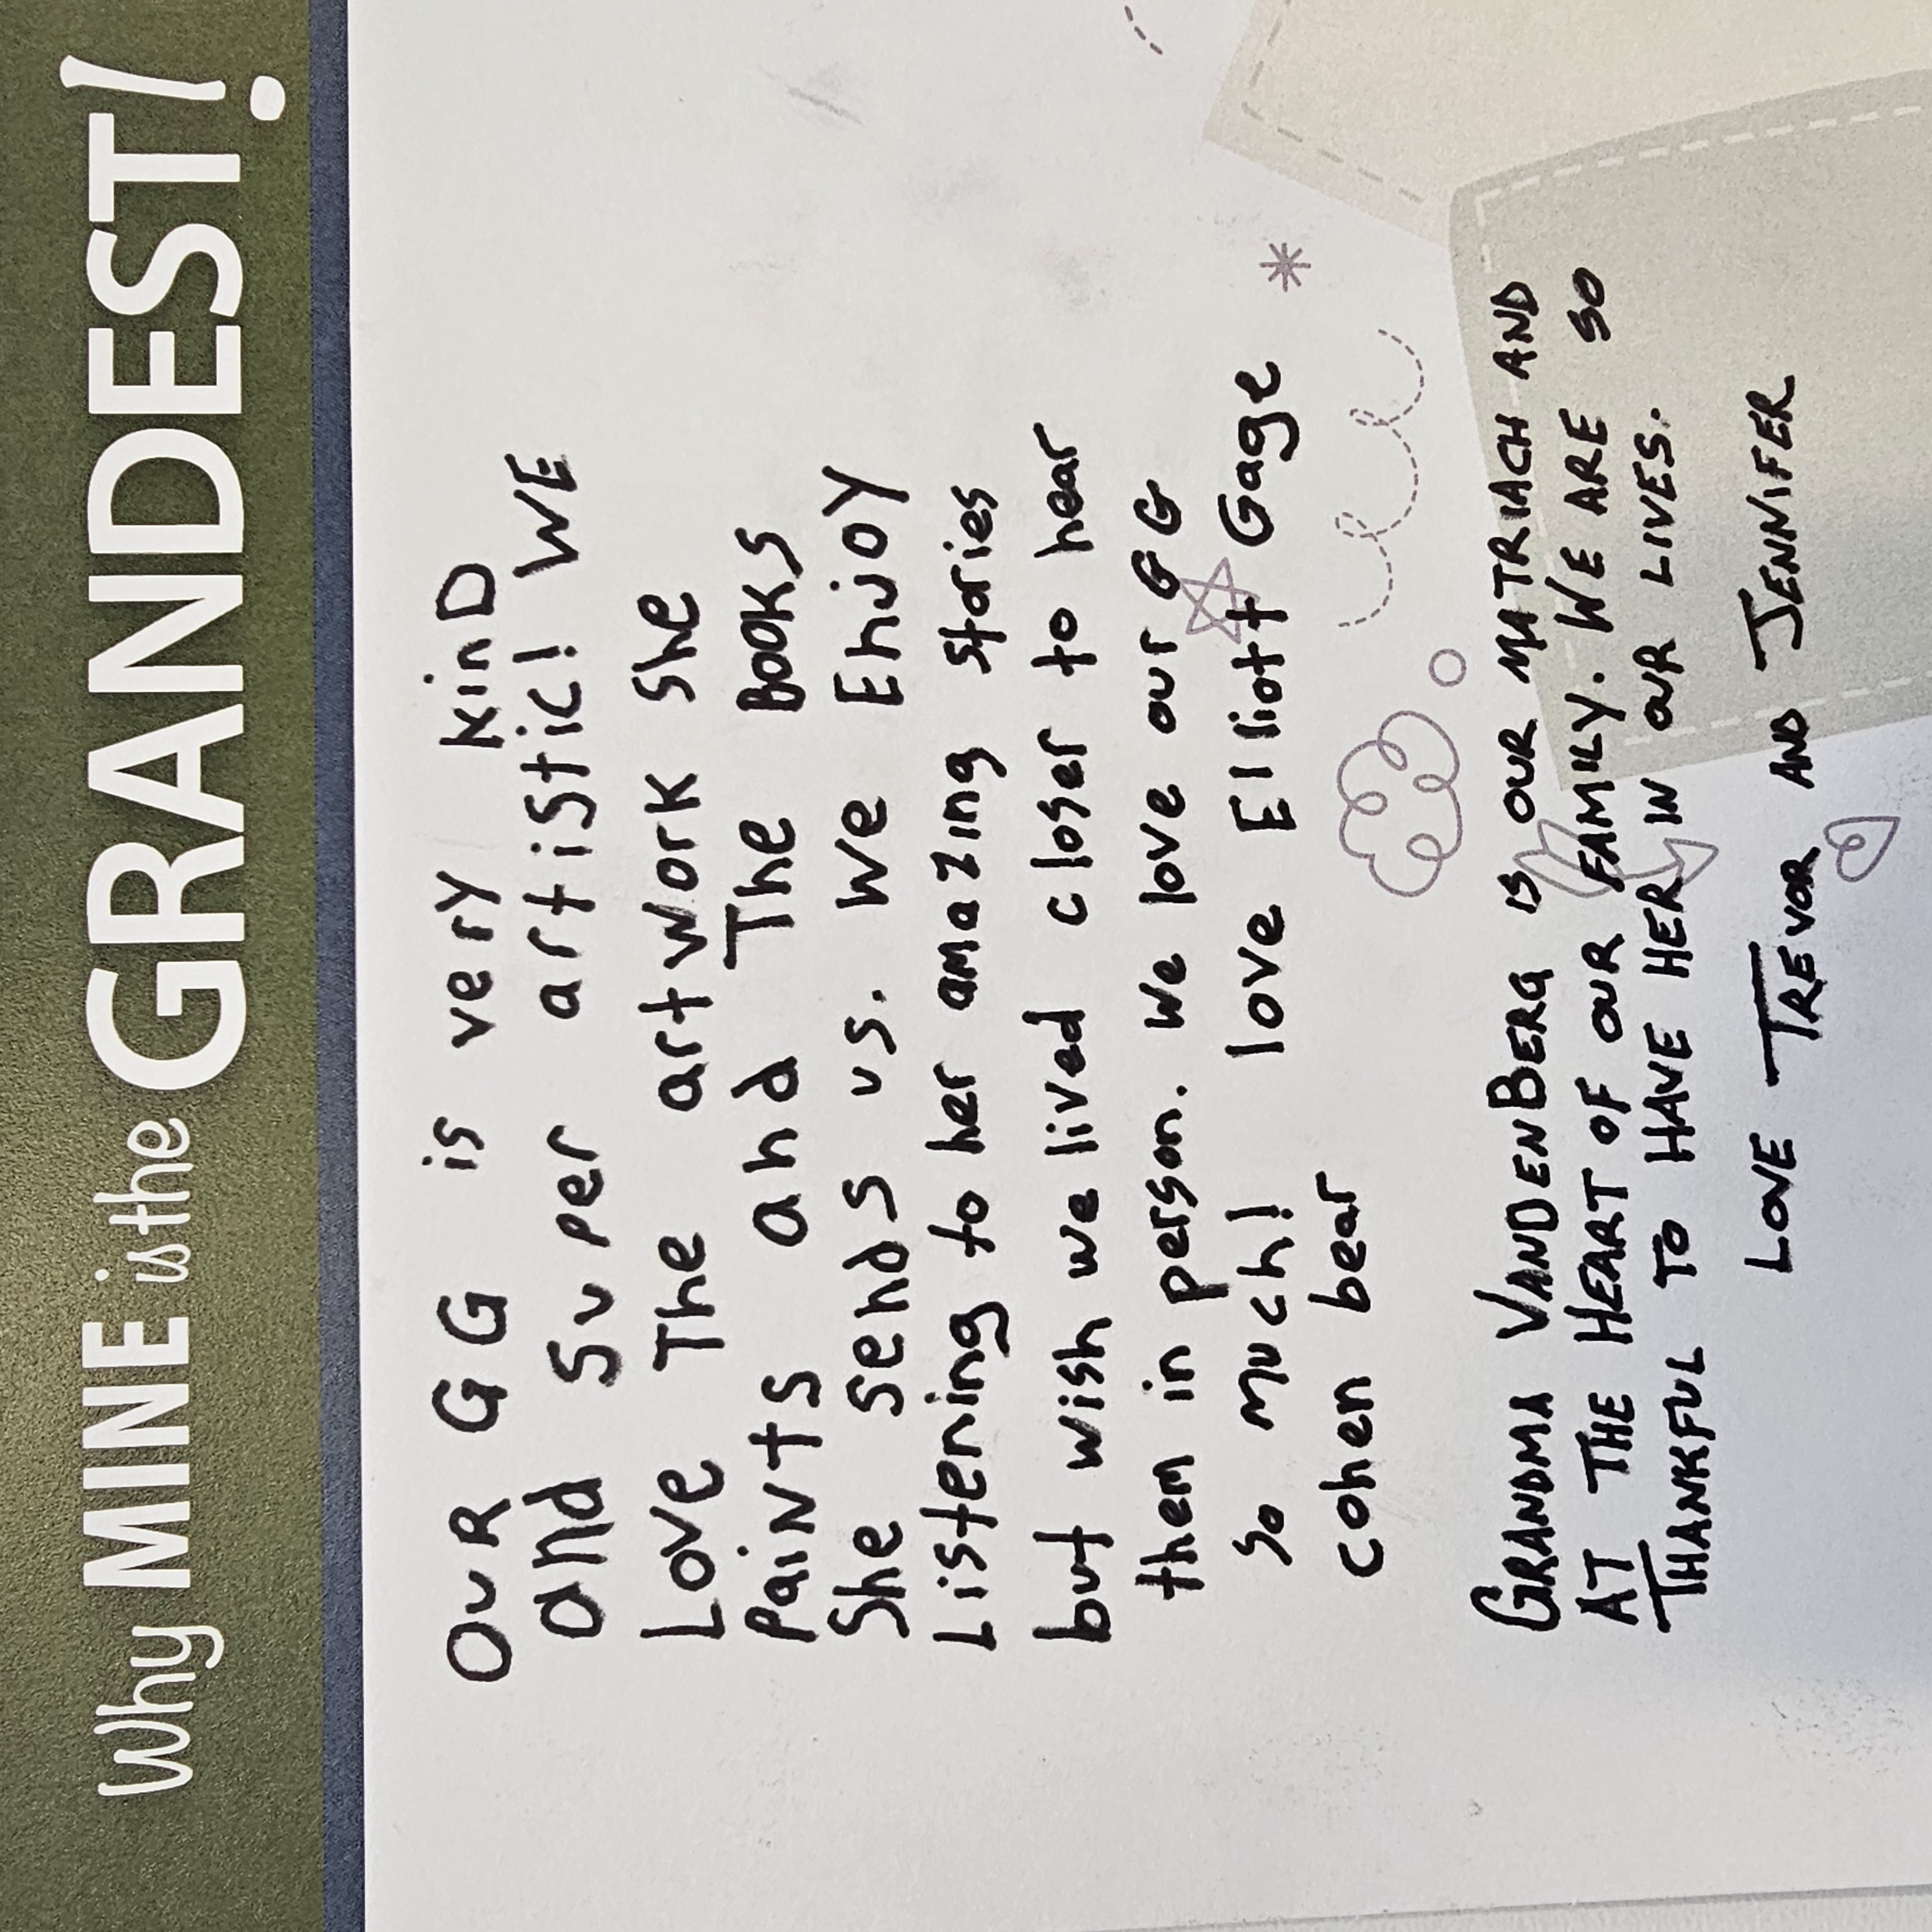 Why MINE is the GRANDEST!
OUR GG is very kinD
and super artistic! WE
Love The artwork she
paints and The BOOKS
She sends us. We Enjoy
Listening to her amazing stories
but wish we lived closer to hear
them in person. We love our GG
so much! love Elliott Gage
cohen bear
GRANDMA VANDENBERG IS OUR MATRIACH AND
AT THE HEART OF OUR FAMILY. WE ARE SO
THANKFUL TO HAVE HER IN OUR LIVES.
LOVE TREVOR AND JENNIFER